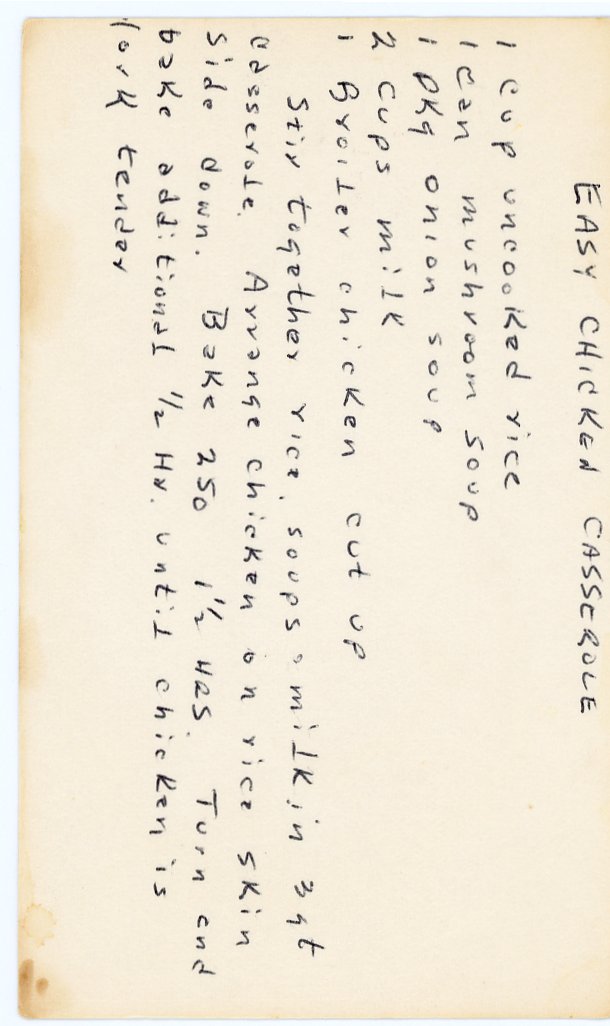 EASY CHICKEN CASSEROLE
1 cup uncooked rice
1 can mushroom soup
1 pkg onion soup
2 cups milk
1 Broiler chicken cut up
Stir together rice, soups & milk, in 3 qt
casserole. Arrange chicken on rice skin
side down. Bake 250 1 1/2 HRS. Turn and
bake additional 1/2 Hr. until chicken is
fork tender